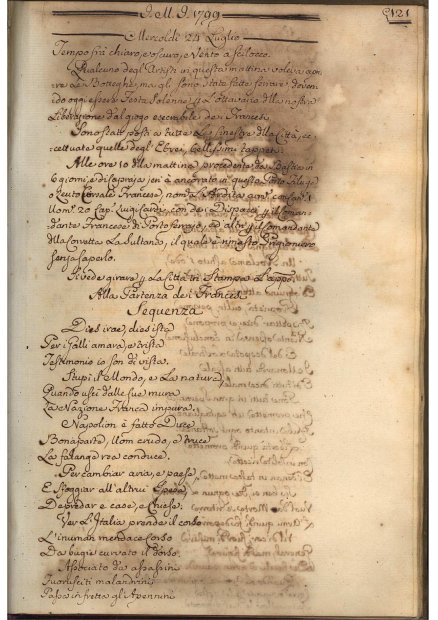 J. M. J. 1799
121
Mercoledì 24 Luglio
Tempo frà chiaro, e oscuro, e Vento a Scilocco.
Qualcuno degl'Artisti in questa mattina voleva apri
re Le Botteghe, ma gli sono state fatte serrare doven
dosi oggi essere Festa Solenne p L'ottavario della nostra
Liberazione dal giogo esecrabile de Francesi
Sono stati posti a tutte Le finestre della Città, ec
cettuate quelle degl'Ebrei, bellissimi tappeti.
Alle ore 10 della mattina procedente da Bastia in
6 giorni, e di
è ancorato in questo Porto
Corsale Francese, nom.
con
Uom. 20 Cap. Luigi
con de Dispacci p il Coman
dante Francese di Portoferrajo, ed altri p il Comandante
della Corvetta La Sultana, il quale è rimasto Prigioniero
senza saperlo.
Si vede girare p La Città in Stampa L'appo.
Alla Partenza dei Francesi
Sequenza
Dies irae, dies ista
Per i Galli amara, e trista
Testimonio io son di vista.
Stupì il Mondo, e La natura,
Quando uscì dalle sue mura
La Nazione
impura.
Napolion è fatto Duce
Bonaparte, Uom crudo, e truce
Le falange rea conduce.
Per cambiar aria, e paese,
E sfoggiar all'altrui spese,
Depredar e case, e Chiese.
Ver L'Italia prende il corso
L'inuman mendace Corso
Da bugie curvato il dorso.
Associato da assassini
Fuorusciti malandrini
Passa in fretta gli Apennini